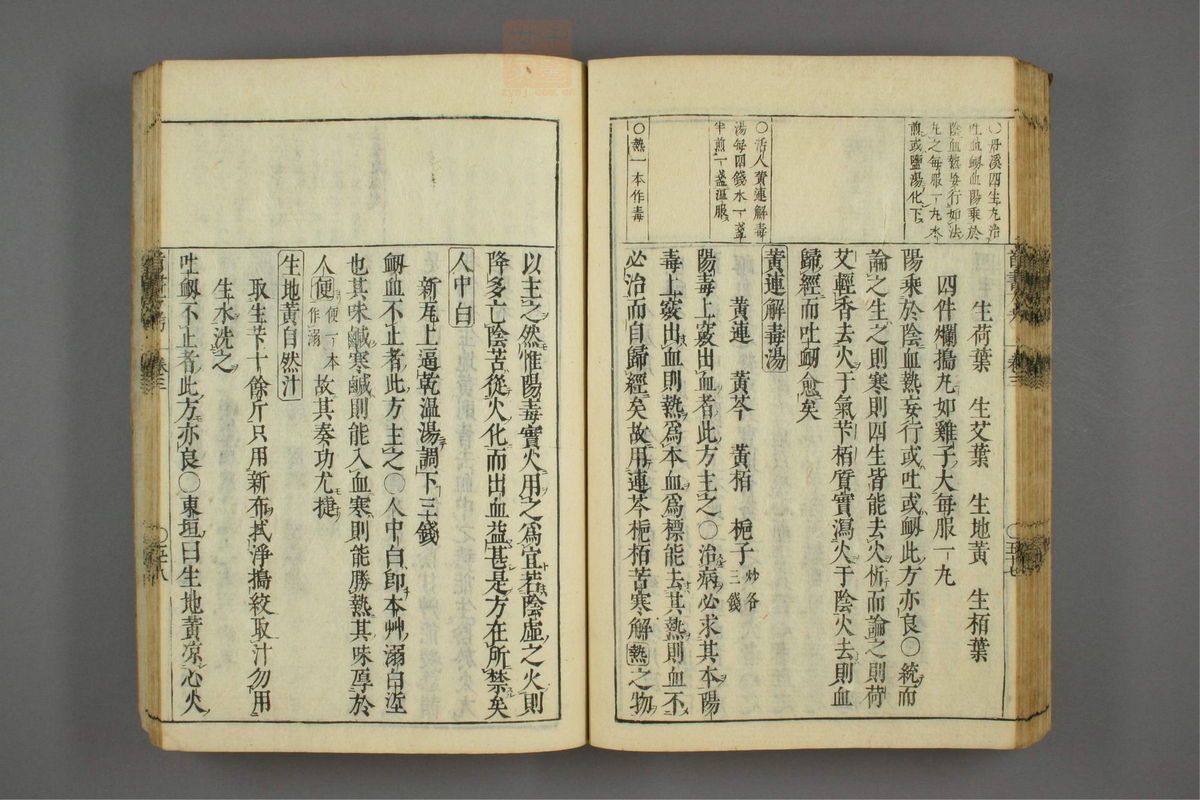 ○丹溪四生丸治
吐血衂血陽乗於
陰血熱妄行如法
丸之毎服一丸水
煎或鹽湯化下
○活人黄連解毒
湯毎四錢水一盞
半煎一盞温服
○熱一本作毒
生荷葉　生艾葉　生地黄　生栢葉
四件爛搗丸如雞子大毎服一丸
陽乗於陰血熱妄行或吐或衂此方亦良○統而
論之生之則寒則四生皆能去火析而論之則荷
艾輕香去火于氣芐栢質實瀉火于陰火去則血
歸經而吐衂愈矣
黄連解毒湯
黄連　黄芩　黄栢　梔子炒各三錢
陽毒上竅出血者此方主之○治病必求其本陽
毒上竅出血則熱爲本血爲標能去其熱則血不
必治而自歸經矣故用連芩梔栢苦寒解熱之物
以主之然惟陽毒實火用之爲宜若陰虚之火則
降多亡陰苦從火化而出血益甚是方在所禁矣
人中白
新瓦上逼乾温湯調下三錢
衂血不止者此方主之○人中白即本艸溺白垽
也其味鹹寒鹹則能入血寒則能勝熱其味厚於
人便便一本作溺故其奏功尤捷
生地黄自然汁
取生芐十餘斤只用新布拭淨搗絞取汁勿用
生水洗之
吐衂不止者此方亦良○東垣曰生地黄凉心火
卷三
○五十七
卷三
○五十八